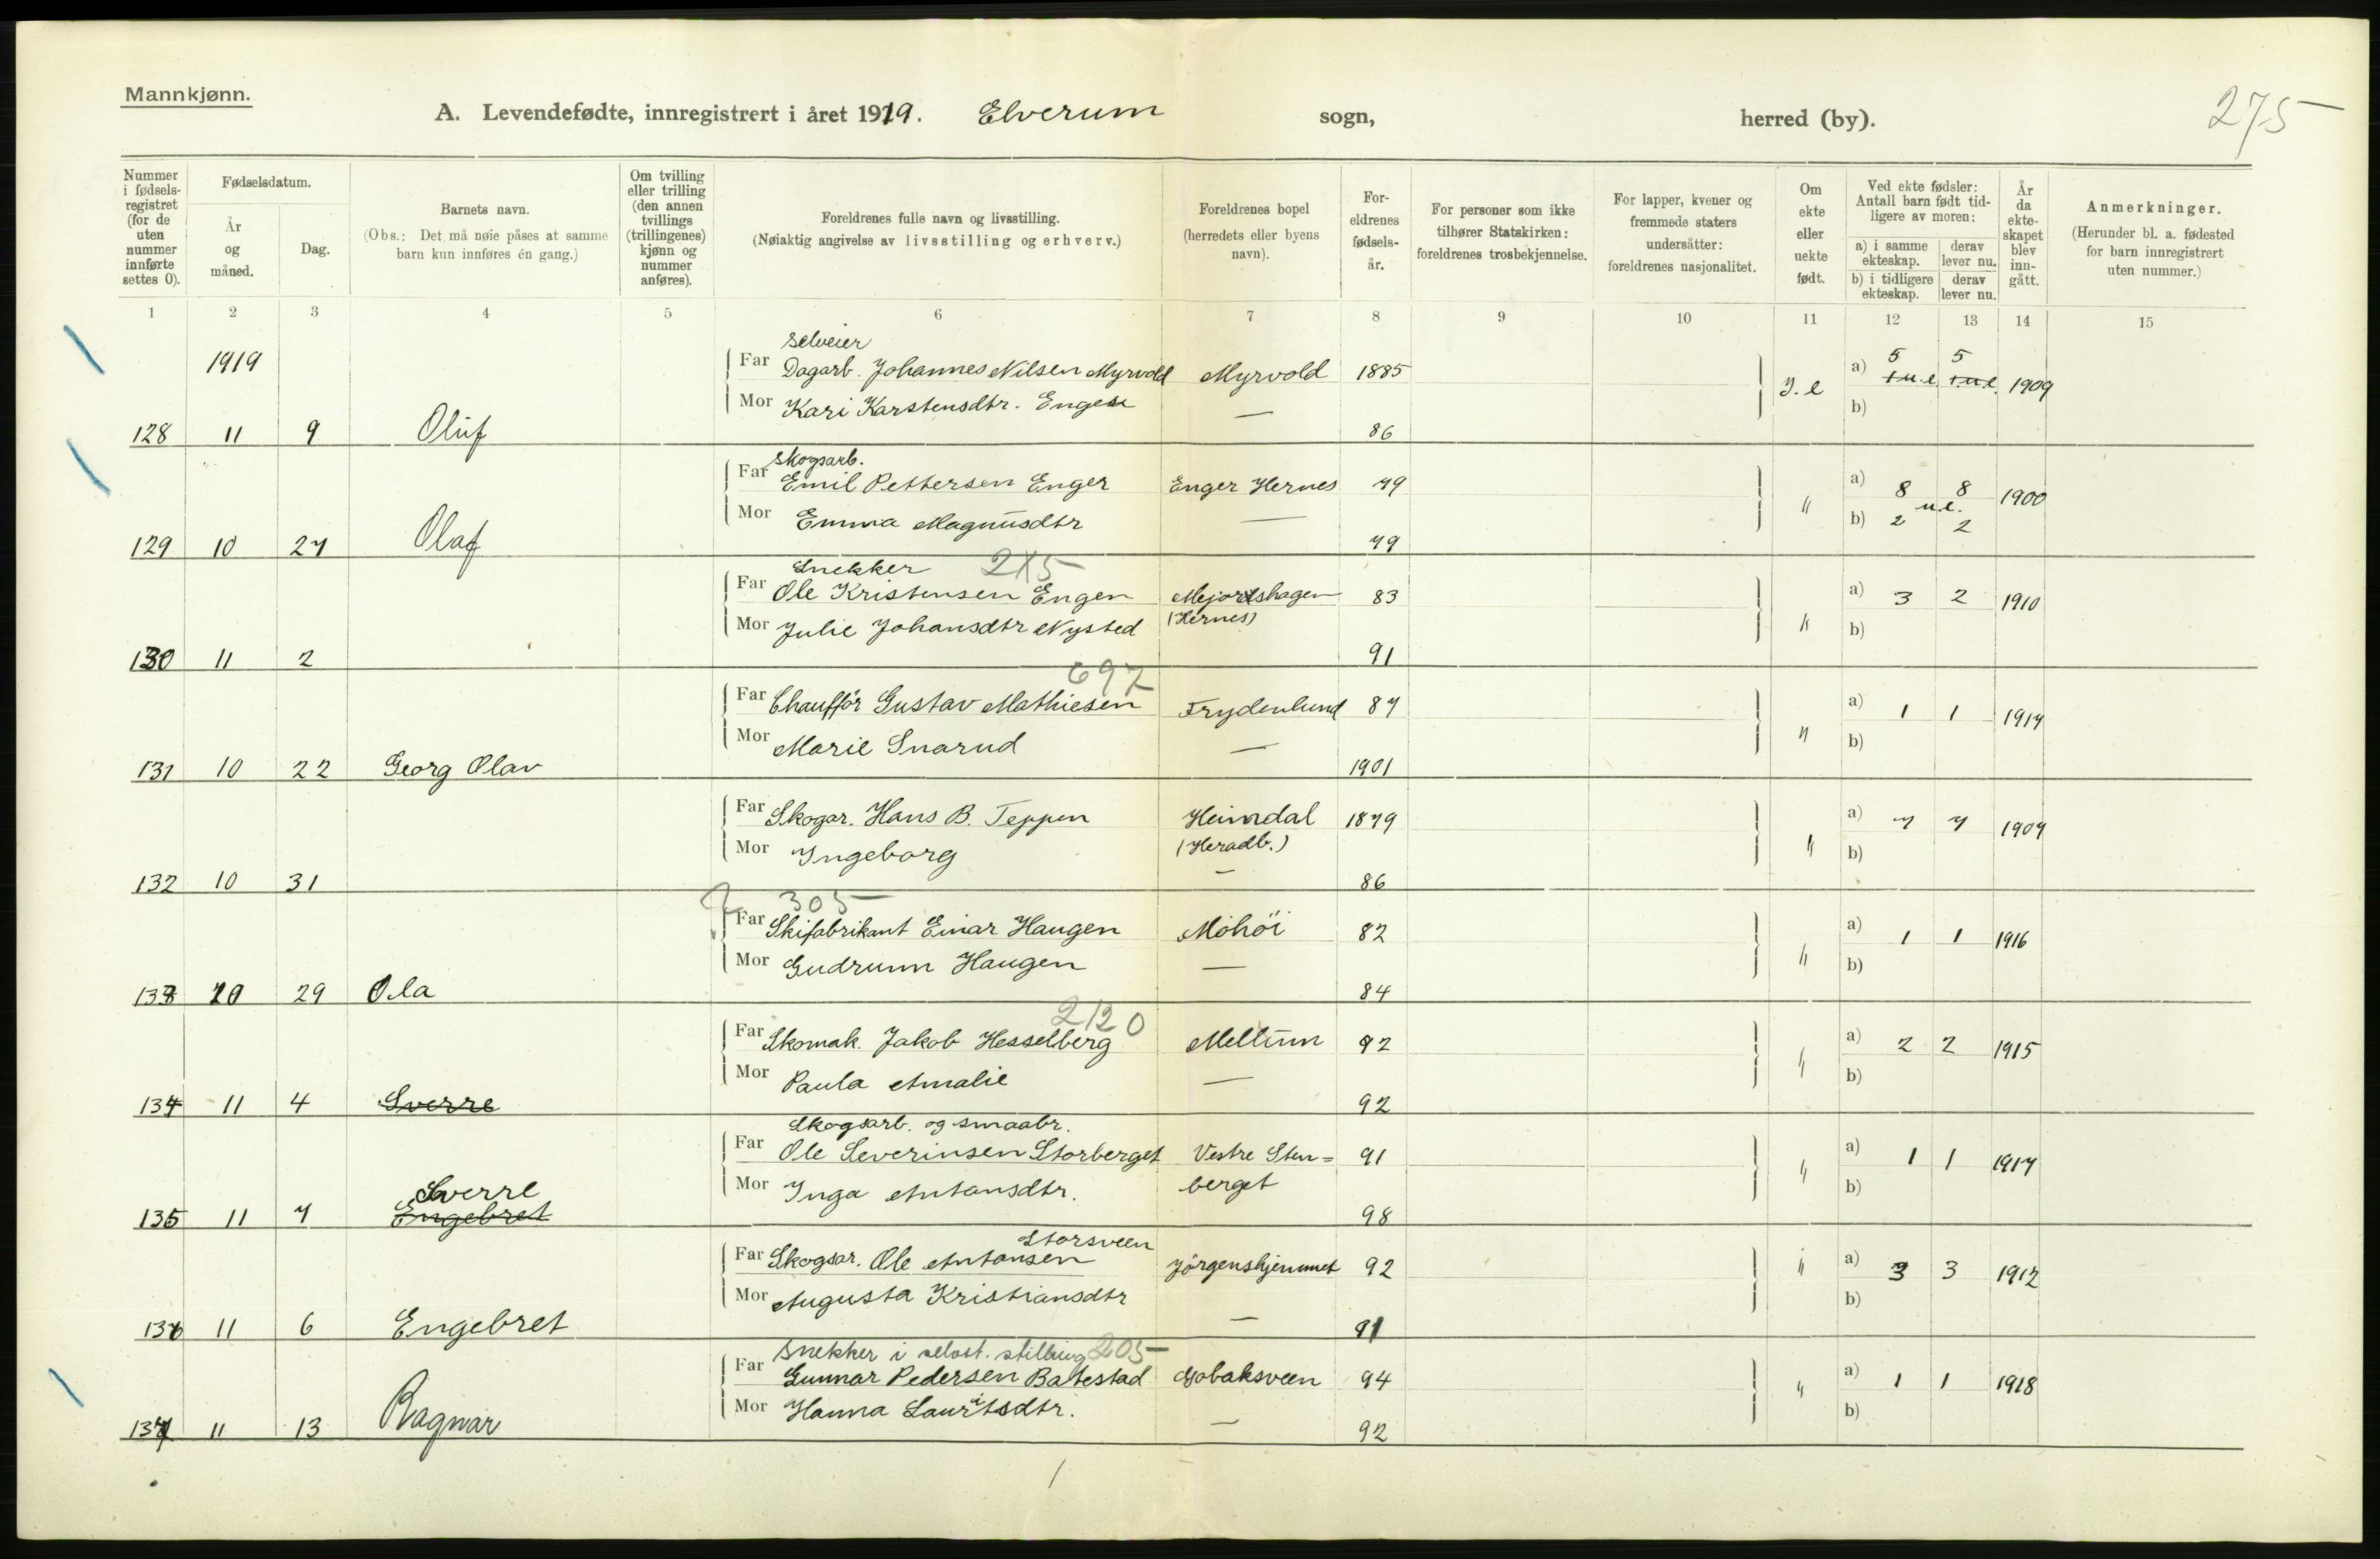 Mannkjønn.
A. Levendefødte, innregistrert i året 1919. Elverum sogn, herred (by). 275
Nummer i fødselsregistret (for de uten nummer innførte settes 0).
Fødselsdatum.
År og måned.
Dag.
Barnets navn.
(Obs.: Det må nøie påses at samme barn kun innføres én gang.)
Om tvilling eller trilling (den annen tvillings (trillingenes) kjønn og nummer anføres).
Foreldrenes fulle navn og livsstilling.
(Nøiaktig angivelse av livsstilling og erhverv.)
Foreldrenes bopel (herredets eller byens navn).
Foreldrenes fødselsår.
For personer som ikke tilhører Statskirken: foreldrenes trosbekjennelse.
For lapper, kvener og fremmede staters undersåtter: foreldrenes nasjonalitet.
Om ekte eller uekte født.
Ved ekte fødsler: Antall barn født tidligere av moren:
a) i samme ekteskap. derav lever nu.
b) i tidligere ekteskap. derav lever nu.
År da ekteskapet blev inngått.
Anmerkninger.
(Herunder bl. a. fødested for barn innregistrert uten nummer.)
1 2 3 4 5 6 7 8 9 10 11 12 13 14 15
1919
selveier
Far Dagarb. Johannes Nilsen Myrvold Myrvold 1885 a) 5 5
Mor Kari Karstensdtr. Engen — J. e 1 u.e. 1 u.e. 1909 b)
128 11 9 Oluf 86
skogsarb.
Far Emil Pettersen Enger Enger Hernes 79 a) 8 8 1900
u.e.
Mor Emma Magnusdtr — " b) 2 2
129 10 27 Olaf 79
Snekker 215
Far Ole Kristensen Engen Mejordshagen 83 a) 3 2 1910
Mor Julie Johansdtr Nysted (Hernes) " b)
130 11 2 91
697
Far Chauffør Gustav Mathiesen Frydenlund 87 a) 1 1 1917
Mor Marie Snarud — " b)
131 10 22 Georg Olav 1901
Far Skogar. Hans B. Teppen Heimdal 1879 a) 7 7 1907
Mor Ingeborg (Heradb.) " b)
132 10 31 — 86
305
Far Skifabrikant Einar Haugen Mohöi 82 a) 1 1 1916
Mor Gudrunn Haugen — " b)
133 10 29 Ola 84
2120
Far Skomak. Jakob Hesselberg Meltunn 92 a) 2 2 1915
Mor Paula Amalie — " b)
134 11 4 Sverre 92
Skogsarb. og smaabr.
Far Ole Severinsen Storberget Vestre Sten= 91 a) 1 1 1917
Mor Inga Antonsdtr. berget " b)
Sverre
135 11 7 Engebret 98
Storsveen
Far Skogsar. Ole Antonsen Jörgenshjemmet 92 " a) 3 3 1912
Mor Augusta Kristiansdtr b)
136 11 6 Engebret — 91
Snekker i selvst. stilling 205
Far Gunnar Pedersen Baltestad Gobaksveen 94 a) 1 1 1918
Mor Hanna Lauritsdtr. " b)
137 11 13 Ragnar — 92